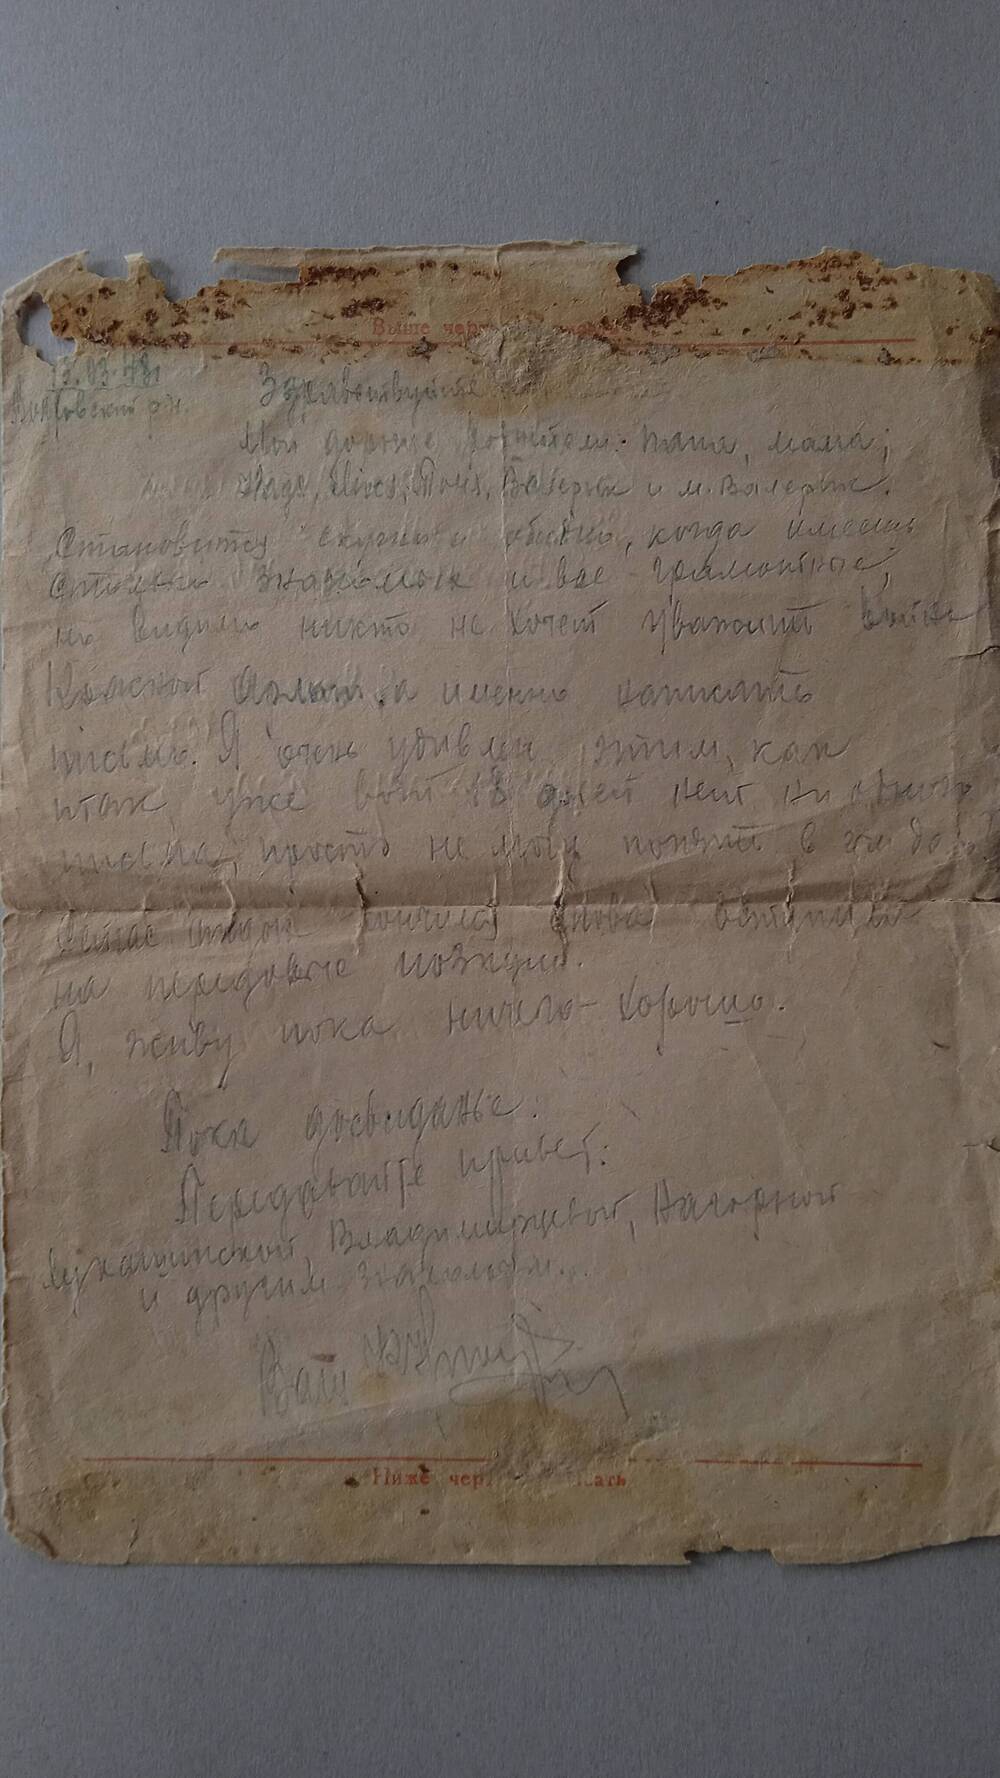 Выше
13.03.43
Здравствуйте
Мои дорогие родители: папа, мама,
Надя, Тоня, Валерик и м. Валерик.
Становится скучно и обидно, когда имеешь
столько знакомых и все грамотные,
но видимо никто не хочет уважить воина
Красной Армии, а именно написать
письмо. Я очень удивлен этим, как
итак уже вот 18 дней нет ни одного
письма, просто не могу понять в чем де
Сейчас отдых кончился снова вступили
на передовые позиции.
Я, живу пока ничего хорошо.
Пока досвиданье.
Передавайте привет:
Лукашинской, Владимирцевой, Нагорной
и другим знакомым.
Ваш
Ниже